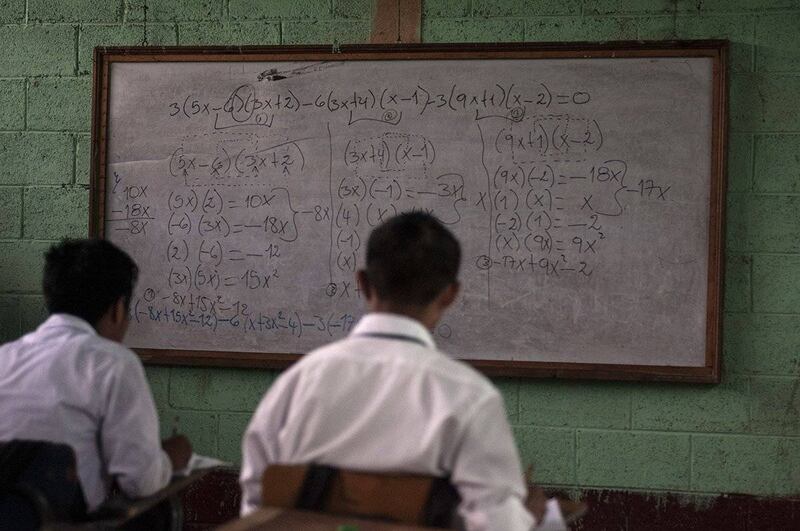 3(5x-6)(3x+2)-6(3x+4)(x-1)-3(9x+1)(x-2)=0
① ② ③
(5x-6)(3x+2)
10x
-18x
-8x
(5x)(2)=10x
(-6)(3x)=-18x
-8x
(2)(-6)=-12
(3x)(5x)=15x²
① -8x+15x²-12
(3x+4)(x-1)
(3x)(-1)=-3x
x
(4)(x)
(-1)
(x)
② x+
(9x+1)(x-2)
(9x)(-2)=-18x
-17x
(1)(x)=x
(-2)(1)=-2
(x)(9x)=9x²
③ -17x+9x²-2
(-8x+15x²-12)-6(x+3x²-4)-3(-17 0